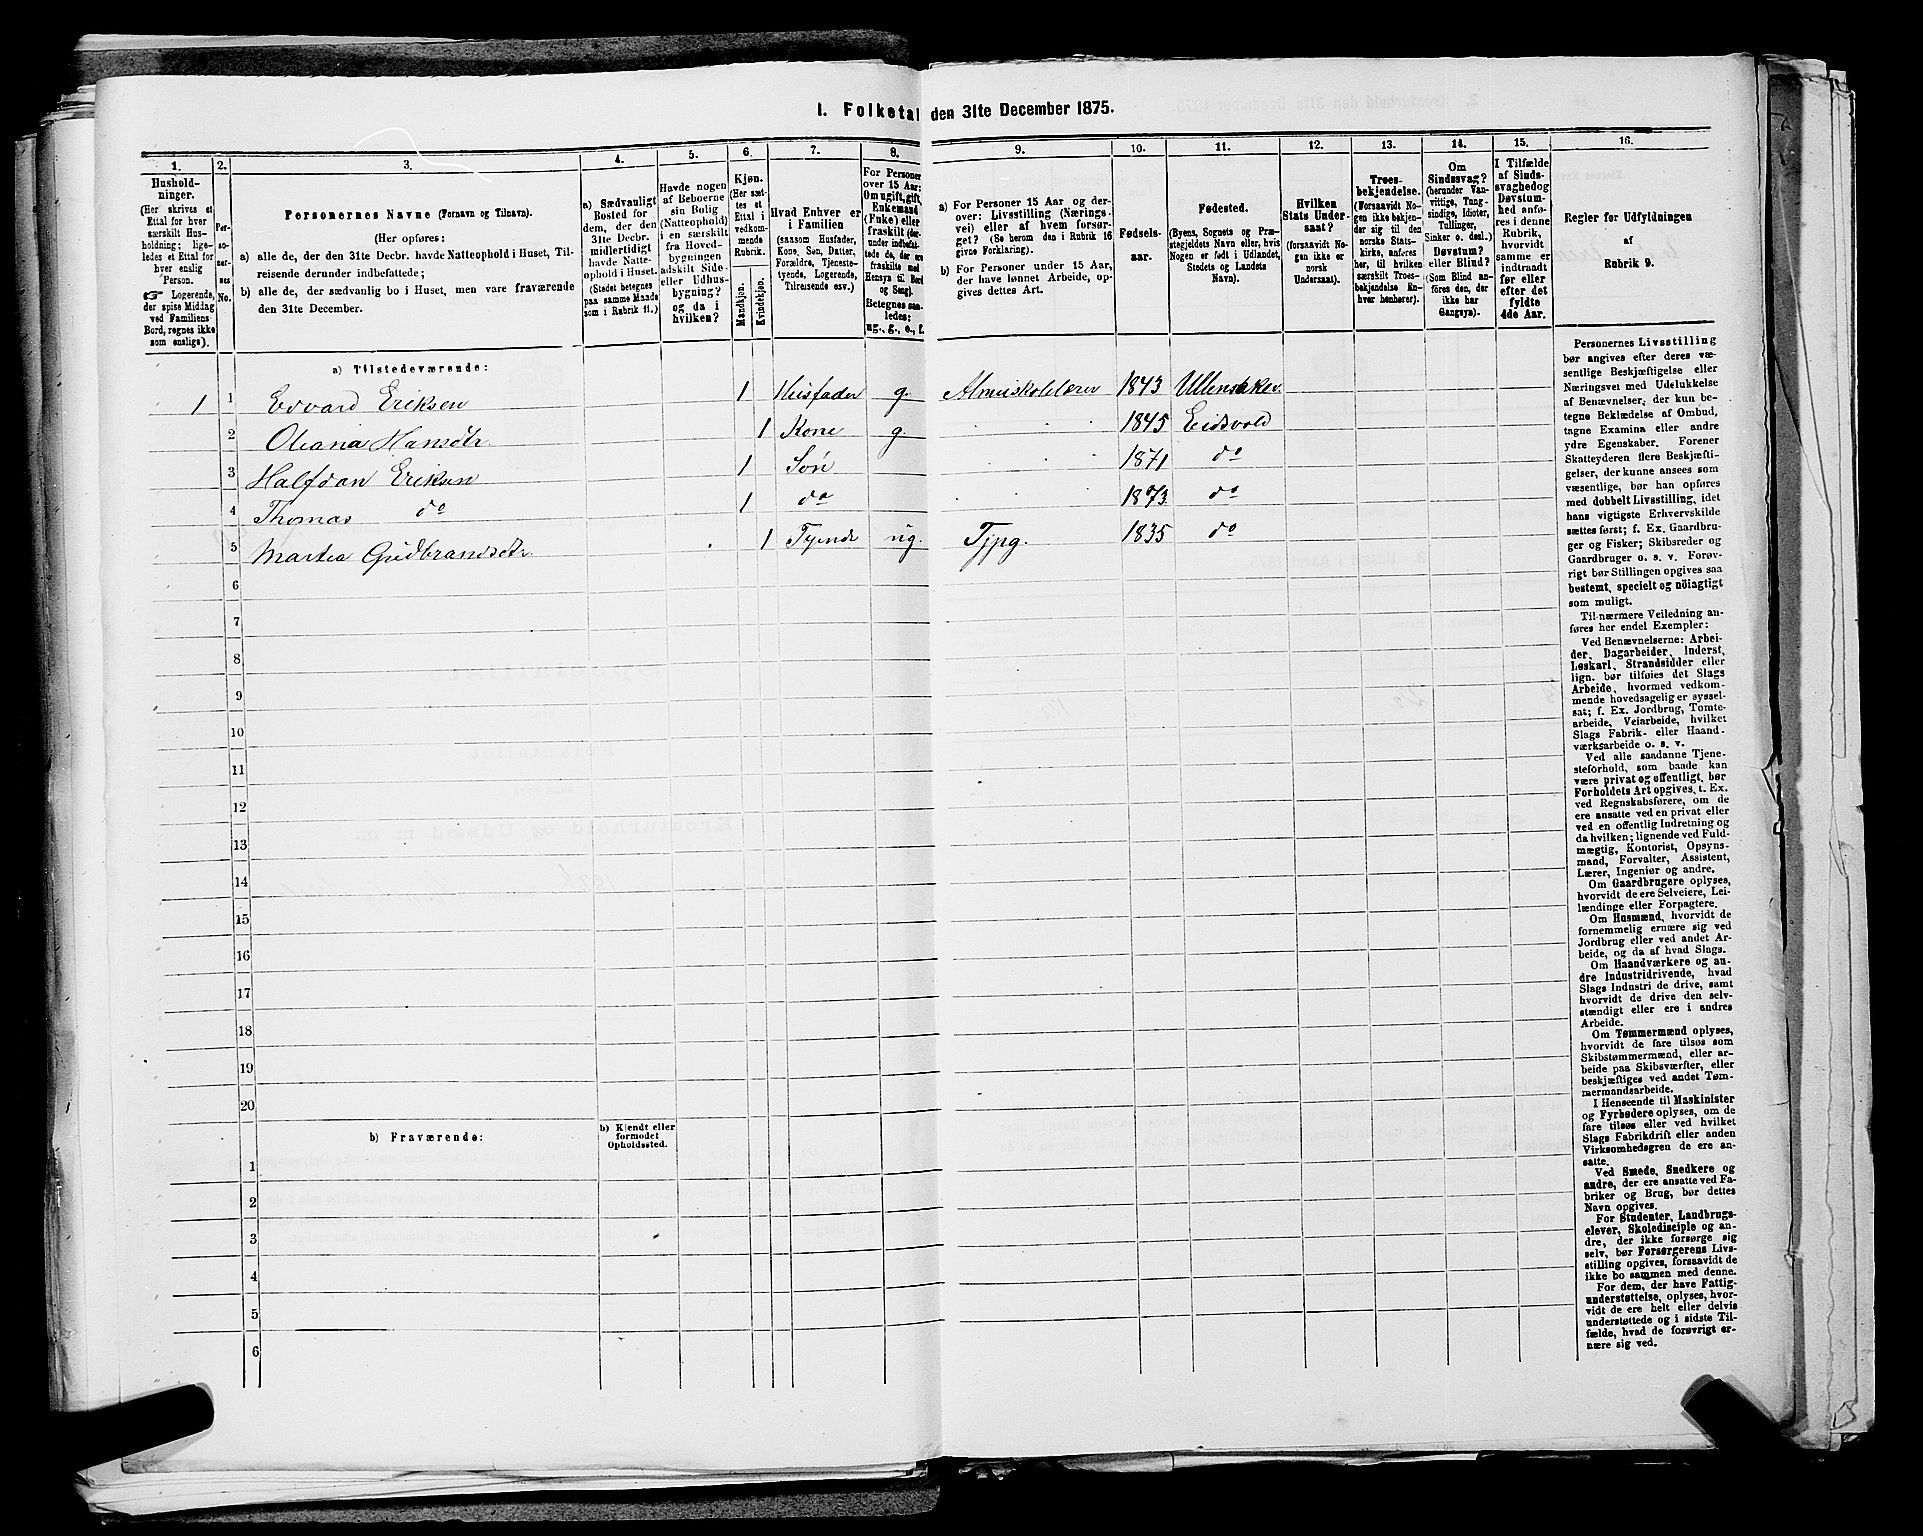 1. Folketal den 31te December 1875.
1. 2. 3. 4. 5. 6. 7. 8. 9. 10. 11. 12. 13. 14. 15. 16.
Hushold-
ninger.
(Her skrives et
Ettal for hver
særskilt Hus-
holdning; lige-
ledes et Ettal for
hver enslig
Person.
☞ Logerende,
der spise Middag
ved Familiens
Bord, regnes ikke
som enslige).
Per-
so-
ner-
nes
No.
Personernes Navne (Fornavn og Tilnavn).
(Her opføres:
a) alle de, der den 31te Decbr. havde Natteophold i Huset, Til-
reisende derunder indbefattede;
b) alle de, der sædvanlig bo i Huset, men vare fraværende
den 31te December.
a) Sædvanligt
Bosted for
dem, der den
31te Decbr.
midlertidigt
havde Natte-
ophold i Huset.
(Stedet betegnes
paa samme Maade
som i Rubrik 11.)
Havde nogen
af Beboerne
sin Bolig
(Natteophold)
i en særskilt
fra Hoved-
bygningen
adskilt Side-
eller Udhus-
bygning?
og da i
hvilken?
Kjøn.
(Her sæt-
tes et
Ettal i
vedkom-
mende
Rubrik.
Mandkjøn.
Kvindekjøn.
Hvad Enhver er
i Familien
(saasom Husfader,
Kone, Søn, Datter,
Forældre, Tjeneste-
tyende, Logerende,
Tilreisende osv.)
For Personer
over 15 Aar:
Om ugift, gift,
Enkemand
(Enke) eller
fraskilt (der-
under indbefat-
tede de, der ere
fraskilte med
Hensyn til Bord
og Seng).
Betegnes saa-
ledes:
ug., g., e., f.
a) For Personer 15 Aar og der-
over: Livsstilling (Nærings-
vei) eller af hvem forsør-
get? (Se herom den i Rubrik 16
givne Forklaring).
b) For Personer under 15 Aar,
der have lønnet Arbeide, op-
gives dettes Art.
Fødsels-
aar.
Fødested.
(Byens, Sognets og Præ-
stegjeldets Navn eller, hvis
Nogen er født i Udlandet,
Stedets og Landets
Navn).
Hvilken
Stats Under-
saat?
(forsaavidt No-
gen ikke er
norsk
Undersaat).
Troes-
bekjendelse.
(Forsaavidt No-
gen ikke bekjen-
der sig til den
norske Stats-
kirke, anføres
her, til hvilken
særskilt Troes-
bekjendelse En-
hver henhører).
Om
Sindssvag?
(herunder Van-
vittige, Tung-
sindige, Idioter,
Tullinger,
Sinker o. desl.)
Døvstum?
eller Blind?
(Som Blind an-
føres den, der
ikke har
Gangsyn).
I Tilfælde
af Sinds-
svaghed og
Døvstum-
hed anfø-
res i denne
Rubrik,
hvorvidt
samme er
indtraadt
før eller
efter det
fyldte
4de Aar.
Regler for Udfyldningen
af
Rubrik 9.
a) Tilstedeværende:
1 1 Edvard Eriksen 1 Husfader g. Almuskolelærer 1843 Ullensaker
2 Oleana Hansdtr 1 Kone g. 1845 Eidsvold
3 Halfdan Eriksen 1 Søn 1871 do
4 Thomas do 1 do 1873 do
5 Marthea Gudbrandsdtr 1 Tyende ug. Tjpg. 1835 do
6
7
8
9
10
11
12
13
14
15
16
17
18
19
20
b) Fraværende:
b) Kjendt eller
formodet
Opholdssted.
1
2
3
4
5
6
Personernes Livsstilling
bør angives efter deres væ-
sentlige Beskjæftigelse eller
Næringsvei med Udelukkelse
af Benævnelser, der kun be-
tegne Beklædelse af Ombud,
tagne Examina eller andre
ydre Egenskaber. Forener
Skatteyderen flere Beskjæfti-
gelser, der kunne ansees som
væsentlige, bør han opføres
med dobbelt Livsstilling, idet
hans vigtigste Erhvervskilde
sættes først; f. Ex. Gaardbru-
ger og Fisker; Skibsreder og
Gaardbruger o. s. v. Forøv-
rigt bør Stillingen opgives saa
bestemt, specielt og nöiagtigt
som muligt.
Til nærmere Veiledning an-
føres her endel Exempler:
Ved Benævnelserne: Arbei-
der, Dagarbeider, Inderst,
Løskarl, Strandsidder eller
lign. bør tilføies det Slags
Arbeide, hvormed vedkom-
mende hovedsagelig er syssel-
sat; f. Ex. Jordbrug, Tomte-
arbeide, Veiarbeide, hvilket
Slags Fabrik- eller Haand-
værksarbeide o. s. v.
Ved alle saadanne Tjene-
steforhold, som baade kan
være privat og offentligt, bør
Forholdets Art opgives, t. Ex.
ved Regnskabsførere, om de
ere ansatte ved en privat eller
ved en offentlig Indretning og
da hvilken; lignende ved Fuld-
mægtig, Kontorist, Opsyns-
mand, Forvalter, Assistent,
Lærer, Ingeniør og andre.
Om Gaardbrugere oplyses,
hvorvidt de ere Selveiere, Lei-
lændinge eller Forpagtere.
Om Husmænd, hvorvidt de
fornemmelig ernære sig ved
Jordbrug eller ved andet Ar-
beide, og da af hvad Slags.
Om Haandværkere og an-
dre Industridrivende, hvad
Slags Industri de drive, samt
hvorvidt de drive den selv-
stændigt eller ere i andres
Arbeide.
Om Tømmermænd oplyses,
hvorvidt de fare tilsøs som
Skibstømmermænd, eller ar-
beide paa Skibsværfter, eller
beskjæftiges ved andet Tøm-
mermandsarbeide.
I Henseende til Maskinister
og Fyrbødere oplyses, om de
fare tilsøs eller ved hvilket
Slags Fabrikdrift eller anden
Virksomhedsgren de ere an-
satte.
Ved Smede, Snedkere og
andre, der ere ansatte ved Fa-
briker og Brug, bør dettes
Navn opgives.
For Studenter, Landbrugs-
elever, Skoledisciple og an-
dre, der ikke forsørge sig
selv, bør Forsørgerens Livs-
stilling opgives, forsaavidt de
ikke bo sammen med denne.
For dem, der have Fattig-
understøttelse, oplyses, hvor-
vidt de ere helt eller delvis
understøttede og i sidste Til-
fælde, hvad de forøvrigt er-
nære sig ved.